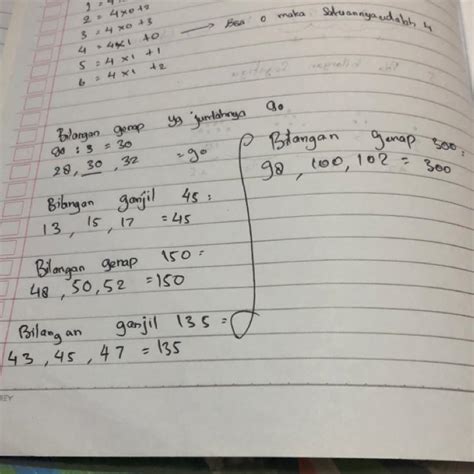 2 = 4x0+2
3 = 4x0+3
4 = 4x1 +0 → Bisa 0 maka satuannya adalah 4
5 = 4x1 +1
6 = 4x1 +2
Bilangan genap yg jumlahnya 90
90 : 3 = 30
28, 30, 32 = 90
Bilangan ganjil 45 :
13, 15, 17 = 45
Bilangan genap 150 :
48, 50, 52 = 150
Bilangan ganjil 135 =
43, 45, 47 = 135
Bilangan genap 300 :
98, 100, 102 = 300